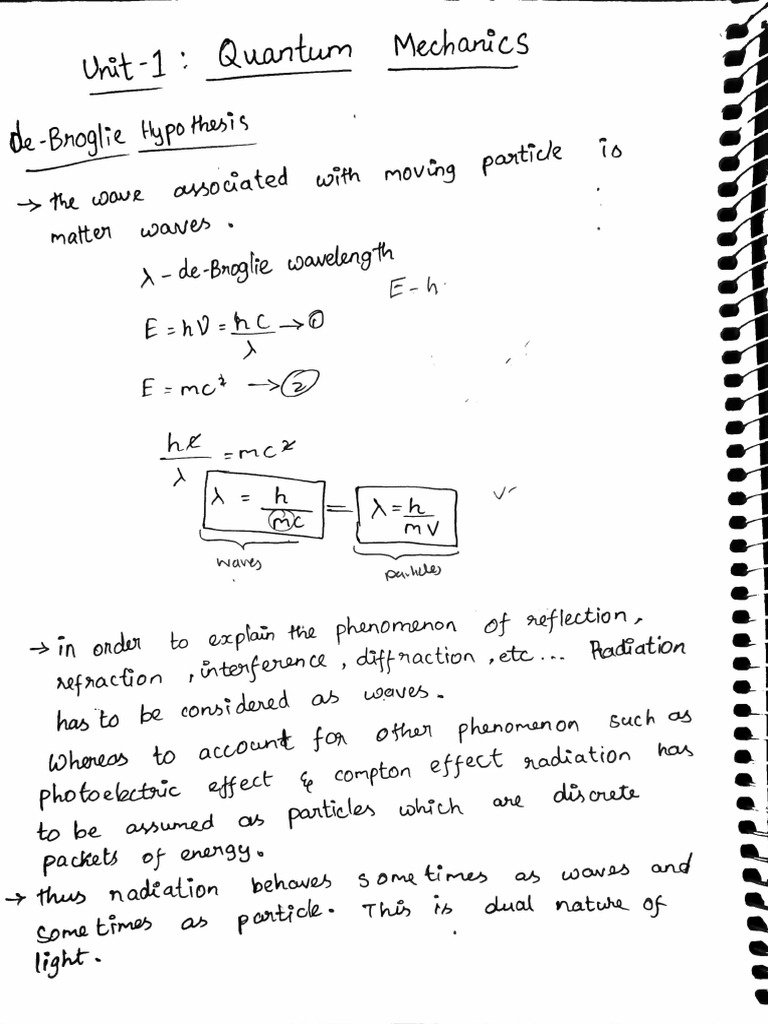 Unit-1 : Quantum Mechanics
de-Broglie Hypothesis
→ the wave associated with moving particle is
matter waves.
λ - de-Broglie wavelength
E - h
E = hν = hc/λ → ①
E = mc² → ②
hc/λ = mc²
λ = h/mc = λ = h/mv
waves particles
→ in order to explain the phenomenon of reflection,
refraction, interference, diffraction, etc... Radiation
has to be considered as waves.
Whereas to account for other phenomenon such as
photoelectric effect & compton effect radiation has
to be assumed as particles which are discrete
packets of energy.
→ thus radiation behaves sometimes as waves and
sometimes as particle. This is dual nature of
light.